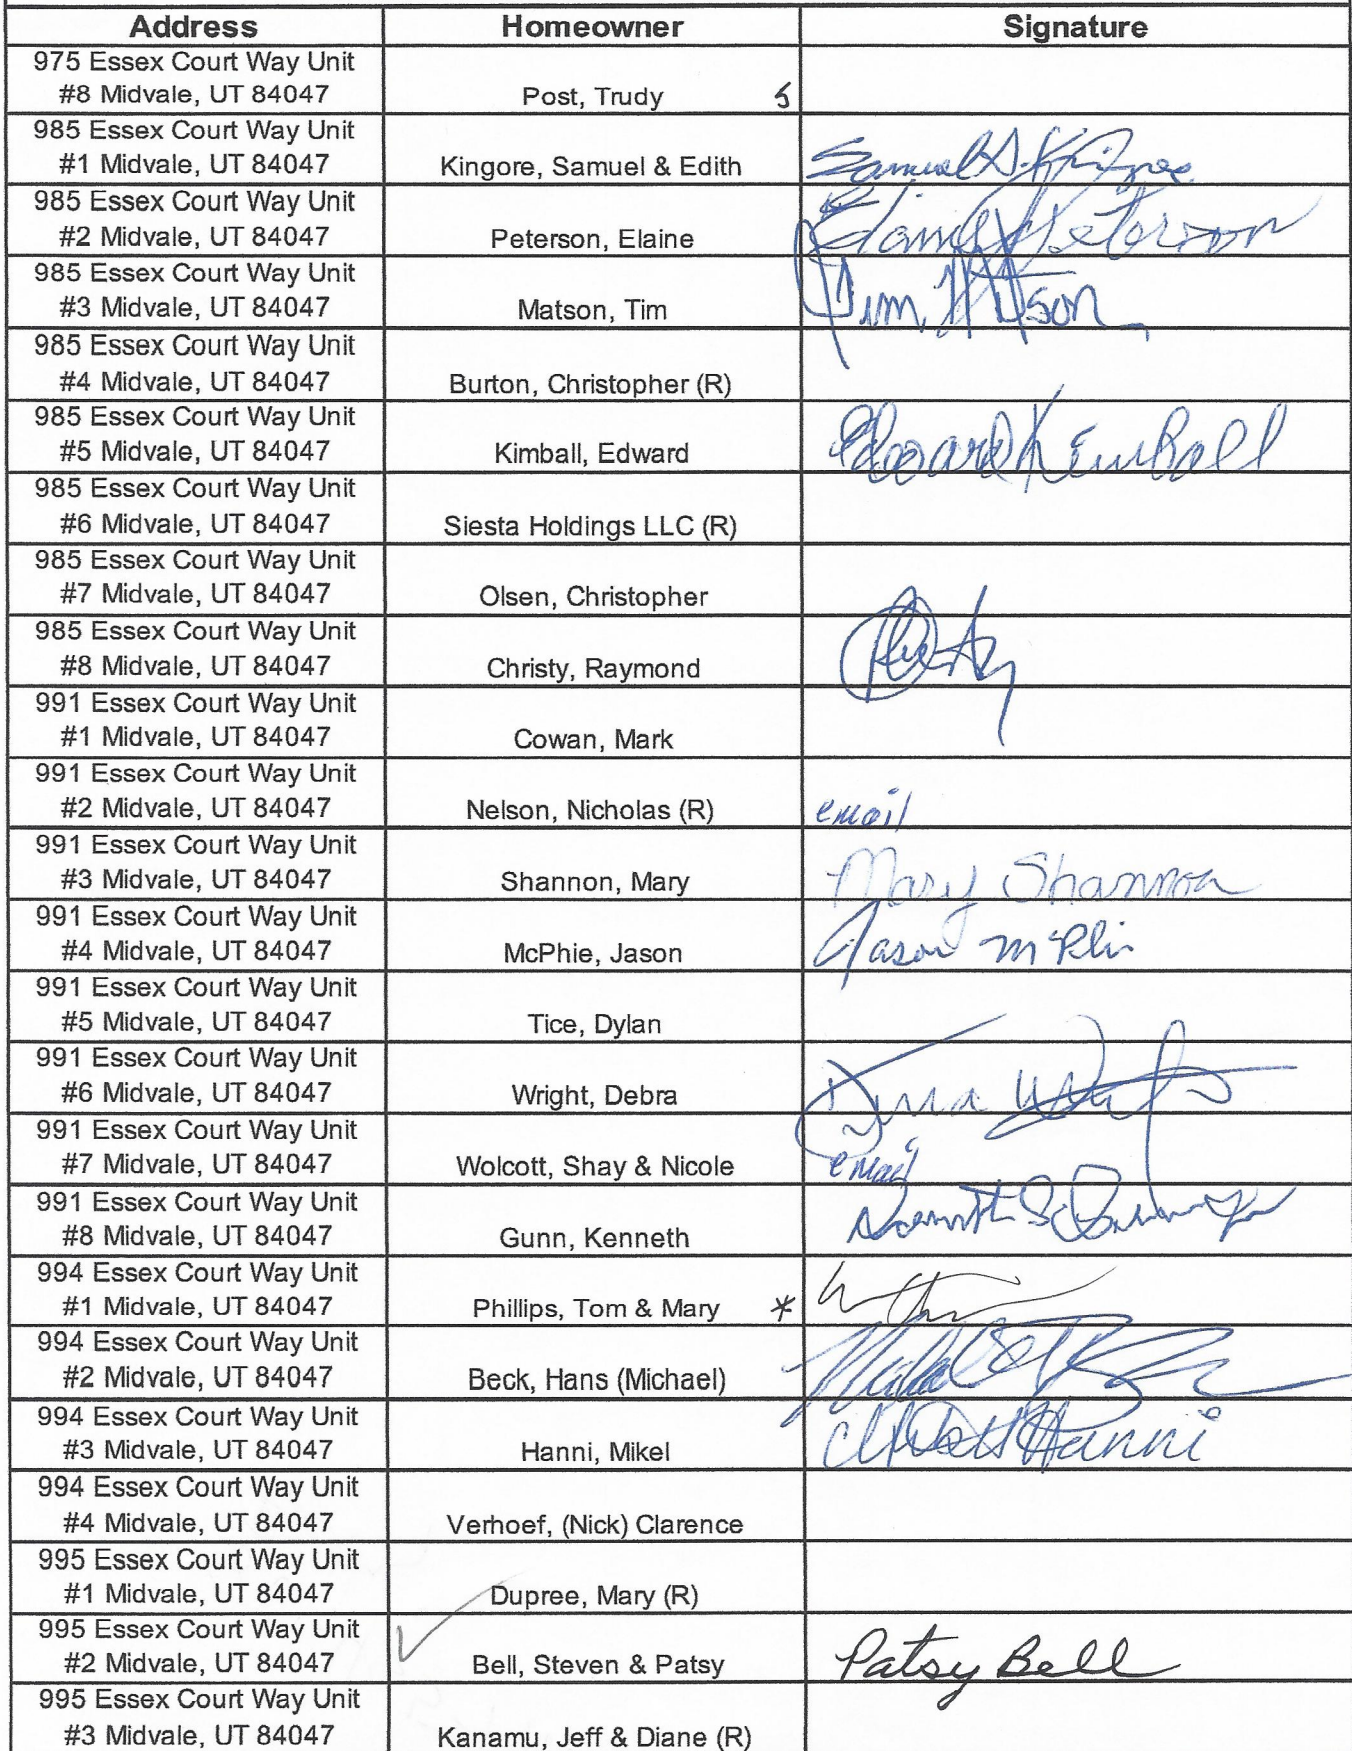 Address Homeowner Signature
975 Essex Court Way Unit
#8 Midvale, UT 84047 Post, Trudy 5
985 Essex Court Way Unit
#1 Midvale, UT 84047 Kingore, Samuel & Edith Samuel S. Kingore
985 Essex Court Way Unit
#2 Midvale, UT 84047 Peterson, Elaine Elaine Peterson
985 Essex Court Way Unit
#3 Midvale, UT 84047 Matson, Tim Tim Matson
985 Essex Court Way Unit
#4 Midvale, UT 84047 Burton, Christopher (R)
985 Essex Court Way Unit
#5 Midvale, UT 84047 Kimball, Edward Edward Kimball
985 Essex Court Way Unit
#6 Midvale, UT 84047 Siesta Holdings LLC (R)
985 Essex Court Way Unit
#7 Midvale, UT 84047 Olsen, Christopher
985 Essex Court Way Unit
#8 Midvale, UT 84047 Christy, Raymond
991 Essex Court Way Unit
#1 Midvale, UT 84047 Cowan, Mark
991 Essex Court Way Unit
#2 Midvale, UT 84047 Nelson, Nicholas (R) email
991 Essex Court Way Unit
#3 Midvale, UT 84047 Shannon, Mary Mary Shannon
991 Essex Court Way Unit
#4 Midvale, UT 84047 McPhie, Jason Jason McPhie
991 Essex Court Way Unit
#5 Midvale, UT 84047 Tice, Dylan
991 Essex Court Way Unit
#6 Midvale, UT 84047 Wright, Debra
991 Essex Court Way Unit
#7 Midvale, UT 84047 Wolcott, Shay & Nicole email
991 Essex Court Way Unit
#8 Midvale, UT 84047 Gunn, Kenneth
994 Essex Court Way Unit
#1 Midvale, UT 84047 Phillips, Tom & Mary *
994 Essex Court Way Unit
#2 Midvale, UT 84047 Beck, Hans (Michael)
994 Essex Court Way Unit
#3 Midvale, UT 84047 Hanni, Mikel Hanni
994 Essex Court Way Unit
#4 Midvale, UT 84047 Verhoef, (Nick) Clarence
995 Essex Court Way Unit
#1 Midvale, UT 84047 Dupree, Mary (R)
995 Essex Court Way Unit
#2 Midvale, UT 84047 Bell, Steven & Patsy Patsy Bell
995 Essex Court Way Unit
#3 Midvale, UT 84047 Kanamu, Jeff & Diane (R)